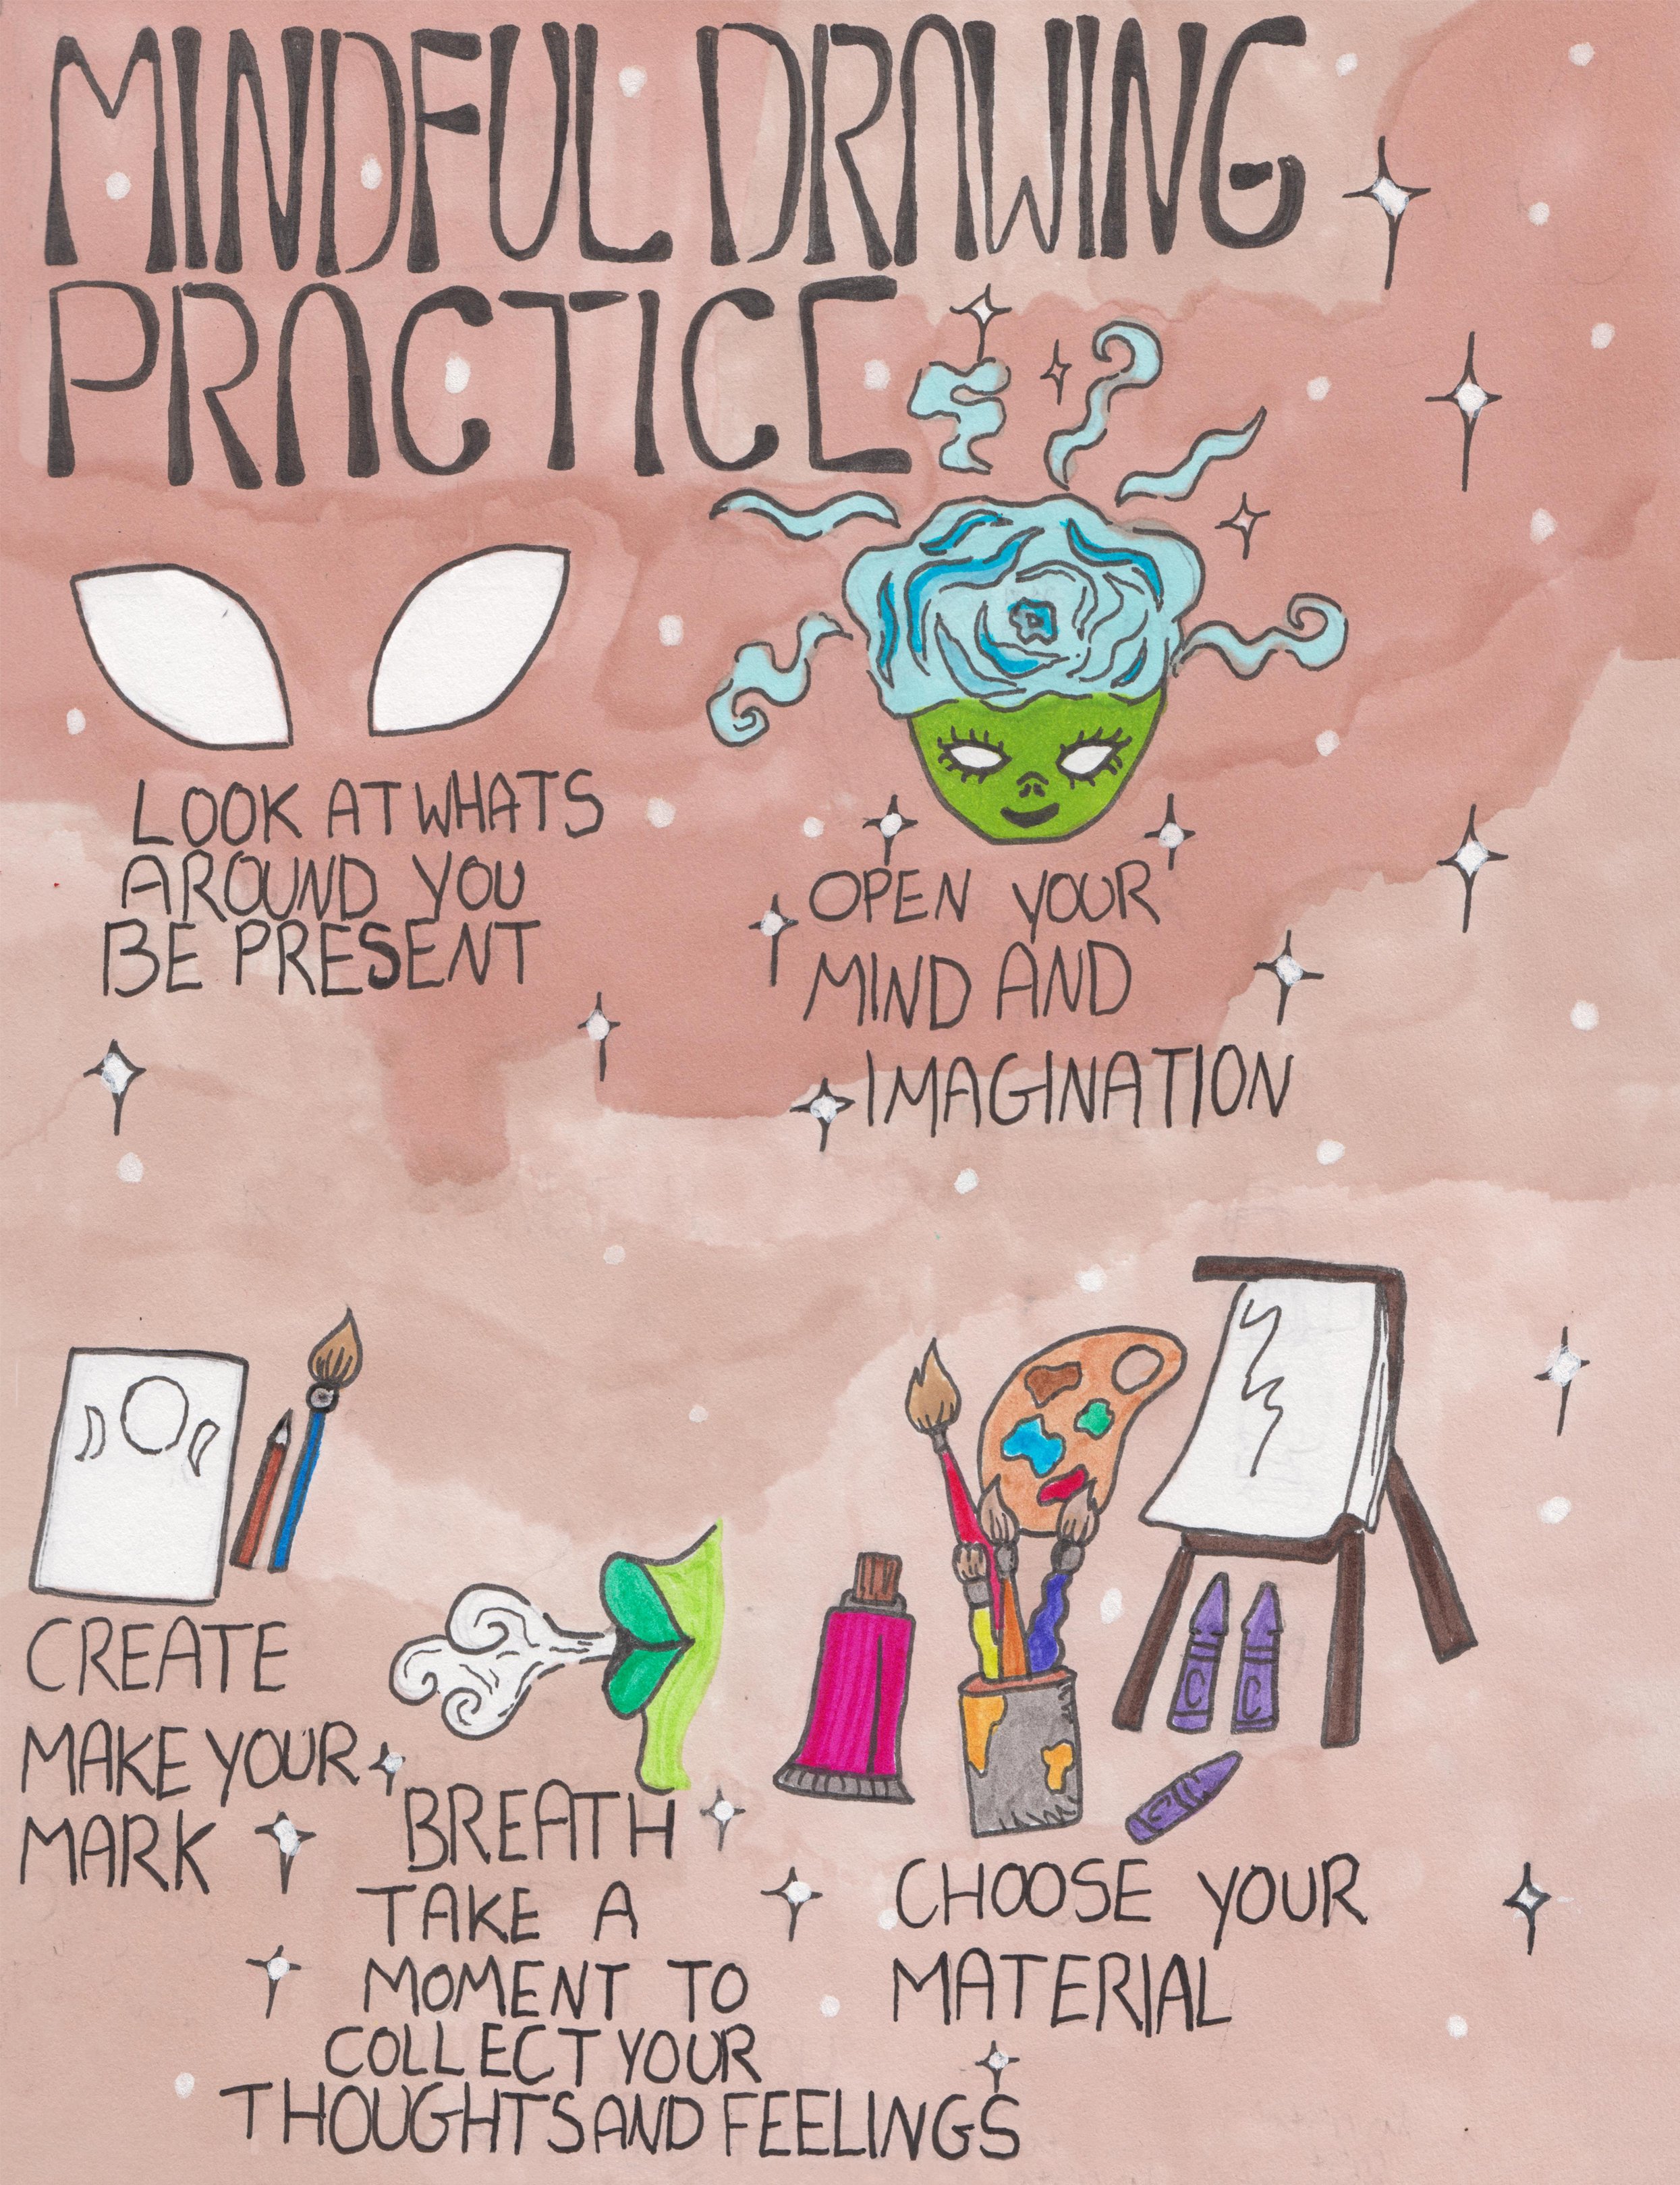 MINDFUL DRAWING
PRACTICE
LOOK AT WHATS
AROUND YOU
BE PRESENT
OPEN YOUR
MIND AND
IMAGINATION
CREATE
MAKE YOUR
MARK
BREATH
TAKE A
MOMENT TO
COLLECT YOUR
THOUGHTS AND FEELINGS
CHOOSE YOUR
MATERIAL